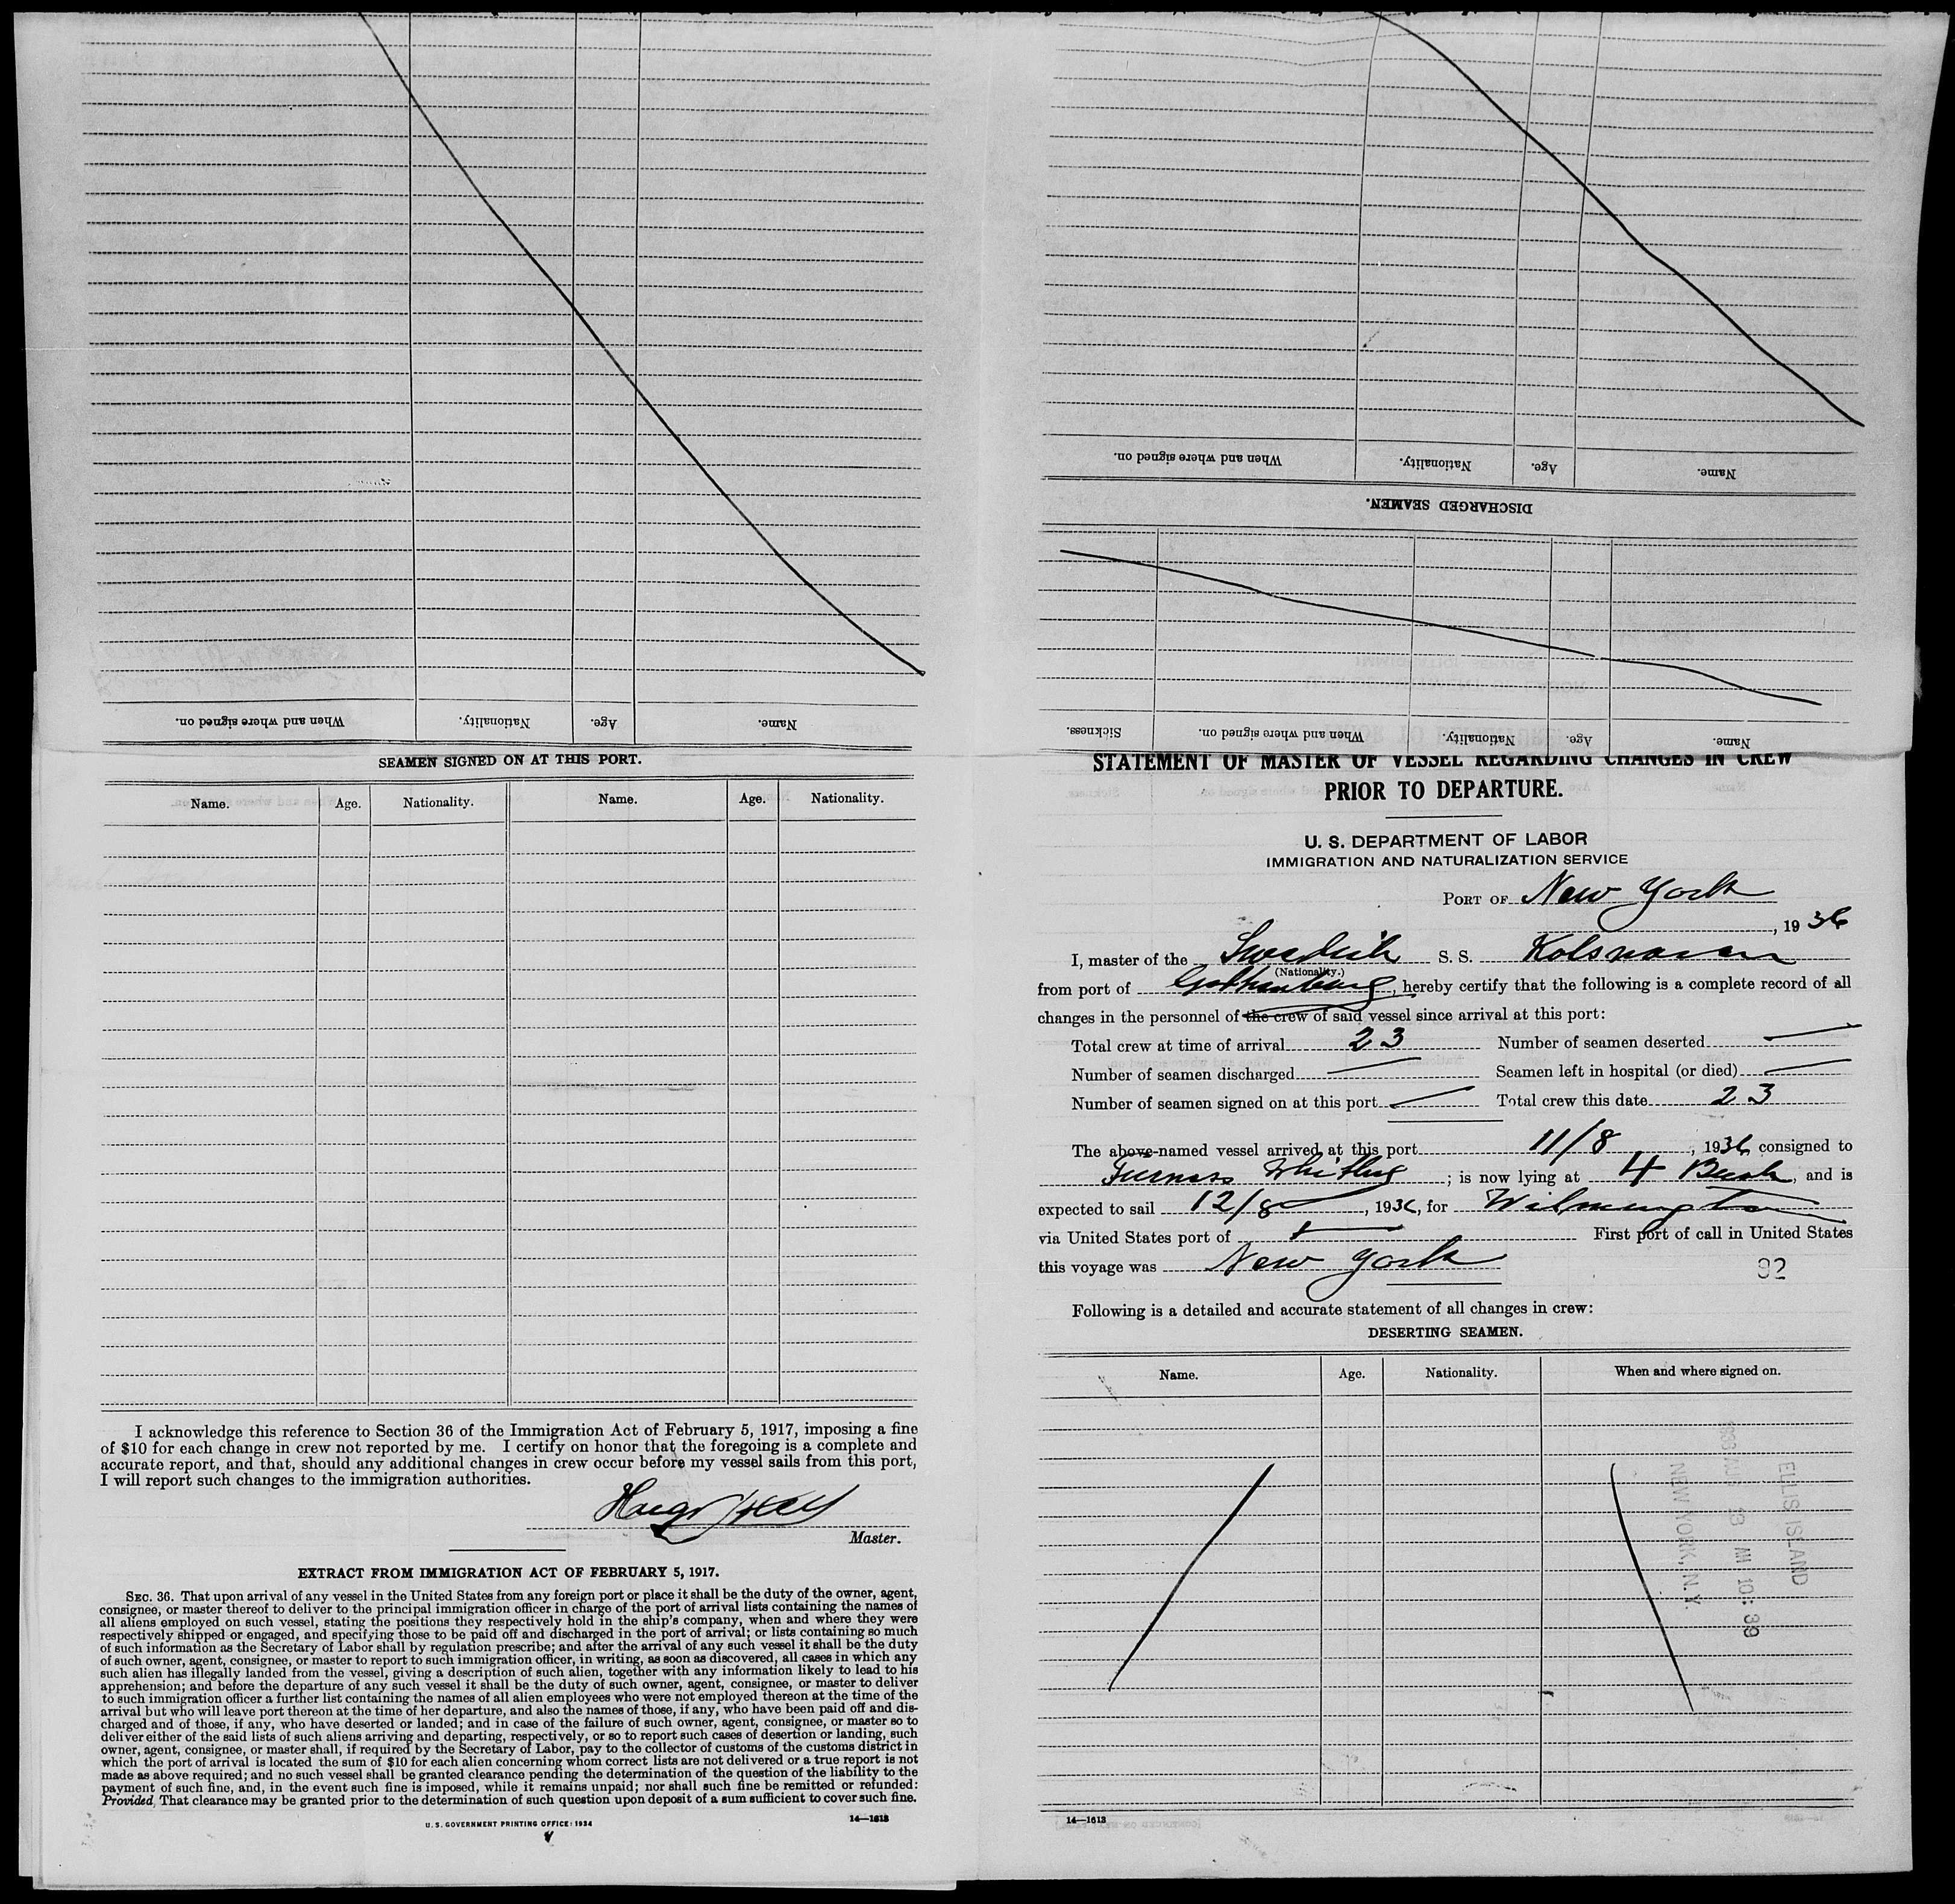 When and where signed on.
Nationality.
Age.
Name.
SEAMEN SIGNED ON AT THIS PORT.
Name.
Age.
Nationality.
Name.
Age.
Nationality.
I acknowledge this reference to Section 36 of the Immigration Act of February 5, 1917, imposing a fine
of $10 for each change in crew not reported by me. I certify on honor that the foregoing is a complete and
accurate report, and that, should any additional changes in crew occur before my vessel sails from this port,
I will report such changes to the immigration authorities.
Master.
EXTRACT FROM IMMIGRATION ACT OF FEBRUARY 5, 1917.
SEC. 36. That upon arrival of any vessel in the United States from any foreign port or place it shall be the duty of the owner, agent,
consignee, or master thereof to deliver to the principal immigration officer in charge of the port of arrival lists containing the names of
all aliens employed on such vessel, stating the positions they respectively hold in the ship's company, when and where they were
respectively shipped or engaged, and specifying those to be paid off and discharged in the port of arrival; or lists containing so much
of such information as the Secretary of Labor shall by regulation prescribe; and after the arrival of any such vessel it shall be the duty
of such owner, agent, consignee, or master to report to such immigration officer, in writing, as soon as discovered, all cases in which any
such alien has illegally landed from the vessel, giving a description of such alien, together with any information likely to lead to his
apprehension; and before the departure of any such vessel it shall be the duty of such owner, agent, consignee, or master to deliver
to such immigration officer a further list containing the names of all alien employees who were not employed thereon at the time of the
arrival but who will leave port thereon at the time of her departure, and also the names of those, if any, who have been paid off and dis-
charged and of those, if any, who have deserted or landed; and in case of the failure of such owner, agent, consignee, or master so to
deliver either of the said lists of such aliens arriving and departing, respectively, or so to report such cases of desertion or landing, such
owner, agent, consignee, or master shall, if required by the Secretary of Labor, pay to the collector of customs of the customs district in
which the port of arrival is located the sum of $10 for each alien concerning whom correct lists are not delivered or a true report is not
made as above required; and no such vessel shall be granted clearance pending the determination of the question of the liability to the
payment of such fine, and, in the event such fine is imposed, while it remains unpaid; nor shall such fine be remitted or refunded:
Provided, That clearance may be granted prior to the determination of such question upon deposit of a sum sufficient to cover such fine.
U. S. GOVERNMENT PRINTING OFFICE: 1934
14—1613
When and where signed on.
Nationality.
Age.
Name.
DISCHARGED SEAMEN.
Sickness.
When and where signed on.
Nationality.
Age.
Name.
STATEMENT OF MASTER OF VESSEL REGARDING CHANGES IN CREW
PRIOR TO DEPARTURE.
U. S. DEPARTMENT OF LABOR
IMMIGRATION AND NATURALIZATION SERVICE
PORT OF New York
, 1936
I, master of the Swedish S. S. Kolsnaren
(Nationality.)
from port of Gothenburg, hereby certify that the following is a complete record of all
changes in the personnel of the crew of said vessel since arrival at this port:
Total crew at time of arrival 23 Number of seamen deserted
Number of seamen discharged Seamen left in hospital (or died)
Number of seamen signed on at this port Total crew this date 23
The above-named vessel arrived at this port 11/8, 1936 consigned to
Furness Withy; is now lying at 4 Bush, and is
expected to sail 12/8, 1936, for Wilmington
via United States port of First port of call in United States
this voyage was New York
92
Following is a detailed and accurate statement of all changes in crew:
DESERTING SEAMEN.
Name.
Age.
Nationality.
When and where signed on.
ELLIS ISLAND
13 AM 10:39
NEW YORK, N.Y.
14—1613